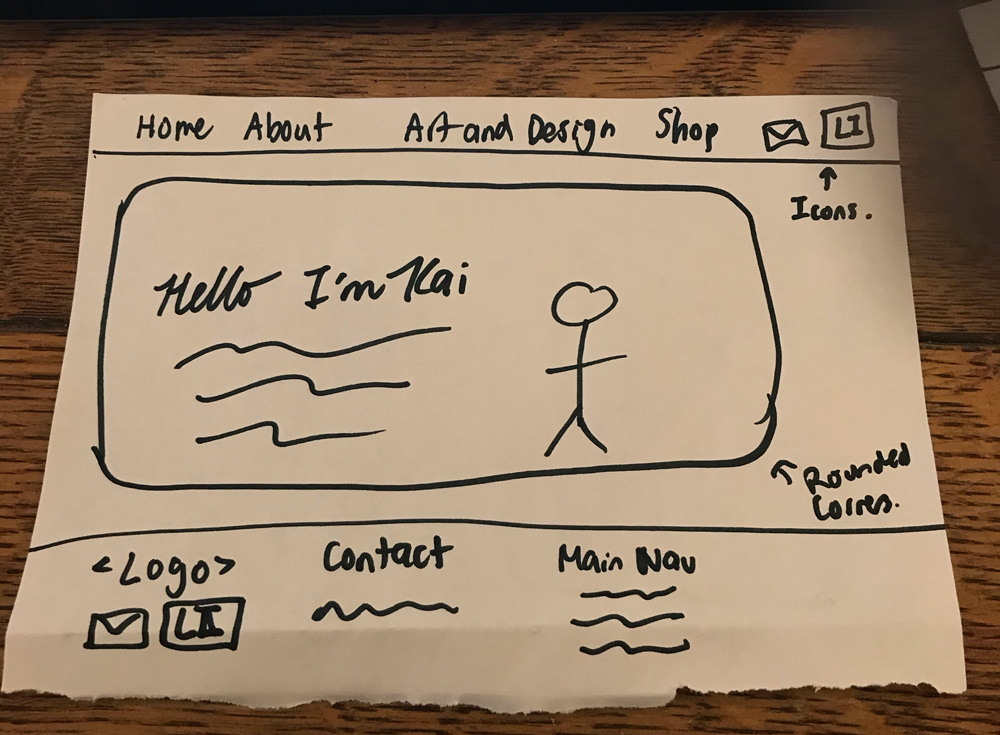 Home About Art and Design Shop LI
Icons.
Hello I'm Kai
Rounded
Corres.
<Logo> Contact Main Nav
LI